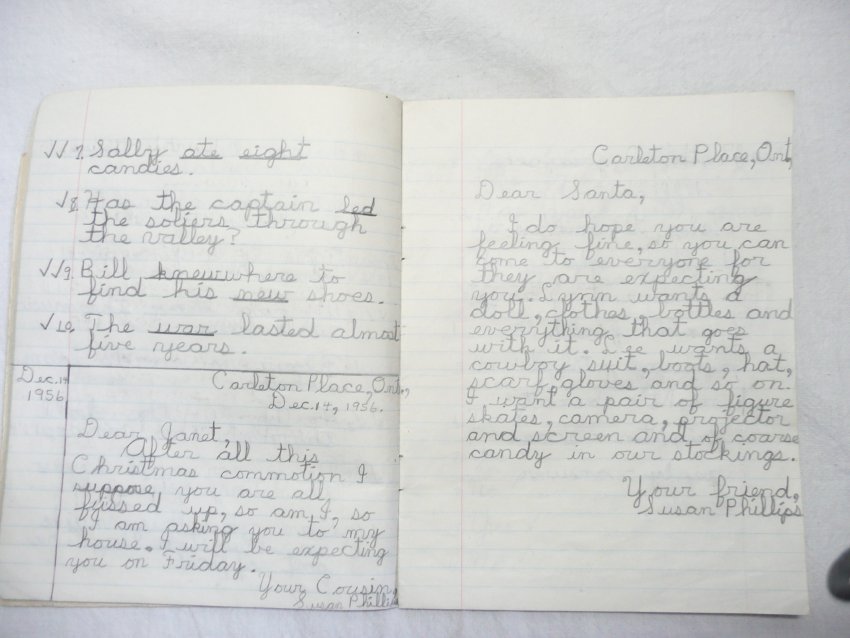 √√ 7. Sally ate eight
candies.
√8. Has the captain led
the soliers through
the valley?
√√9. Bill knew where to
find his new shoes.
√10. The war lasted almost
five years.
Dec. 14
1956.
Carleton Place, Ont.,
Dec. 14, 1956.
Dear Janet,
After all this
Christmas commotion I
suppose you are all
fussed up, so am I, so
I am asking you to my
house. I will be expecting
you on Friday.
Your Cousin,
Susan Phillips
Carleton Place, Ont,
Dear Santa,
I do hope you are
feeling fine, so you can
come to everyone for
they are expecting
you. Lynn wants a
doll, clothes, bottles and
everything that goes
with it. Lee wants a
cowboy suit, boots, hat,
scarf, gloves and so on.
I want a pair of figure
skates, camera, projector
and screen and of coarse
candy in our stockings.
Your friend,
Susan Phillips